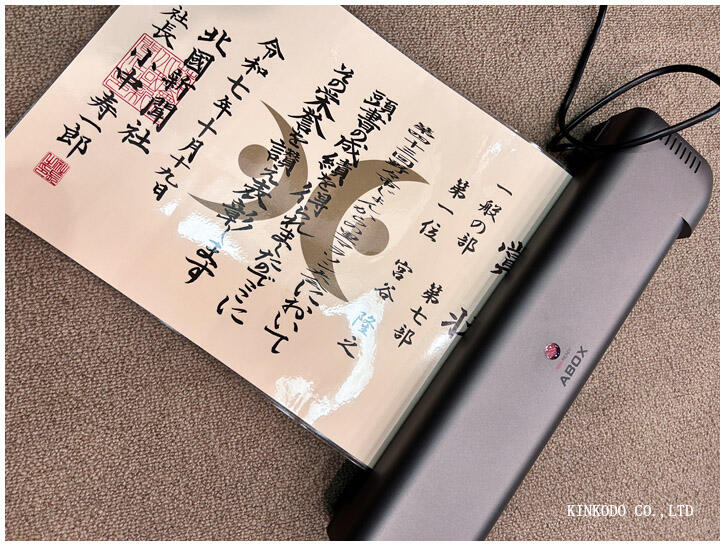 賞状
一般の部 第七部
第一位 宮谷 隆之
第十三回 において
頭書の成績を得られましたのでここに
その栄誉を讃え表彰します
令和七年十月十九日
北國新聞社
社長 小中 寿一郎
ABOX
KINKODO CO.,LTD